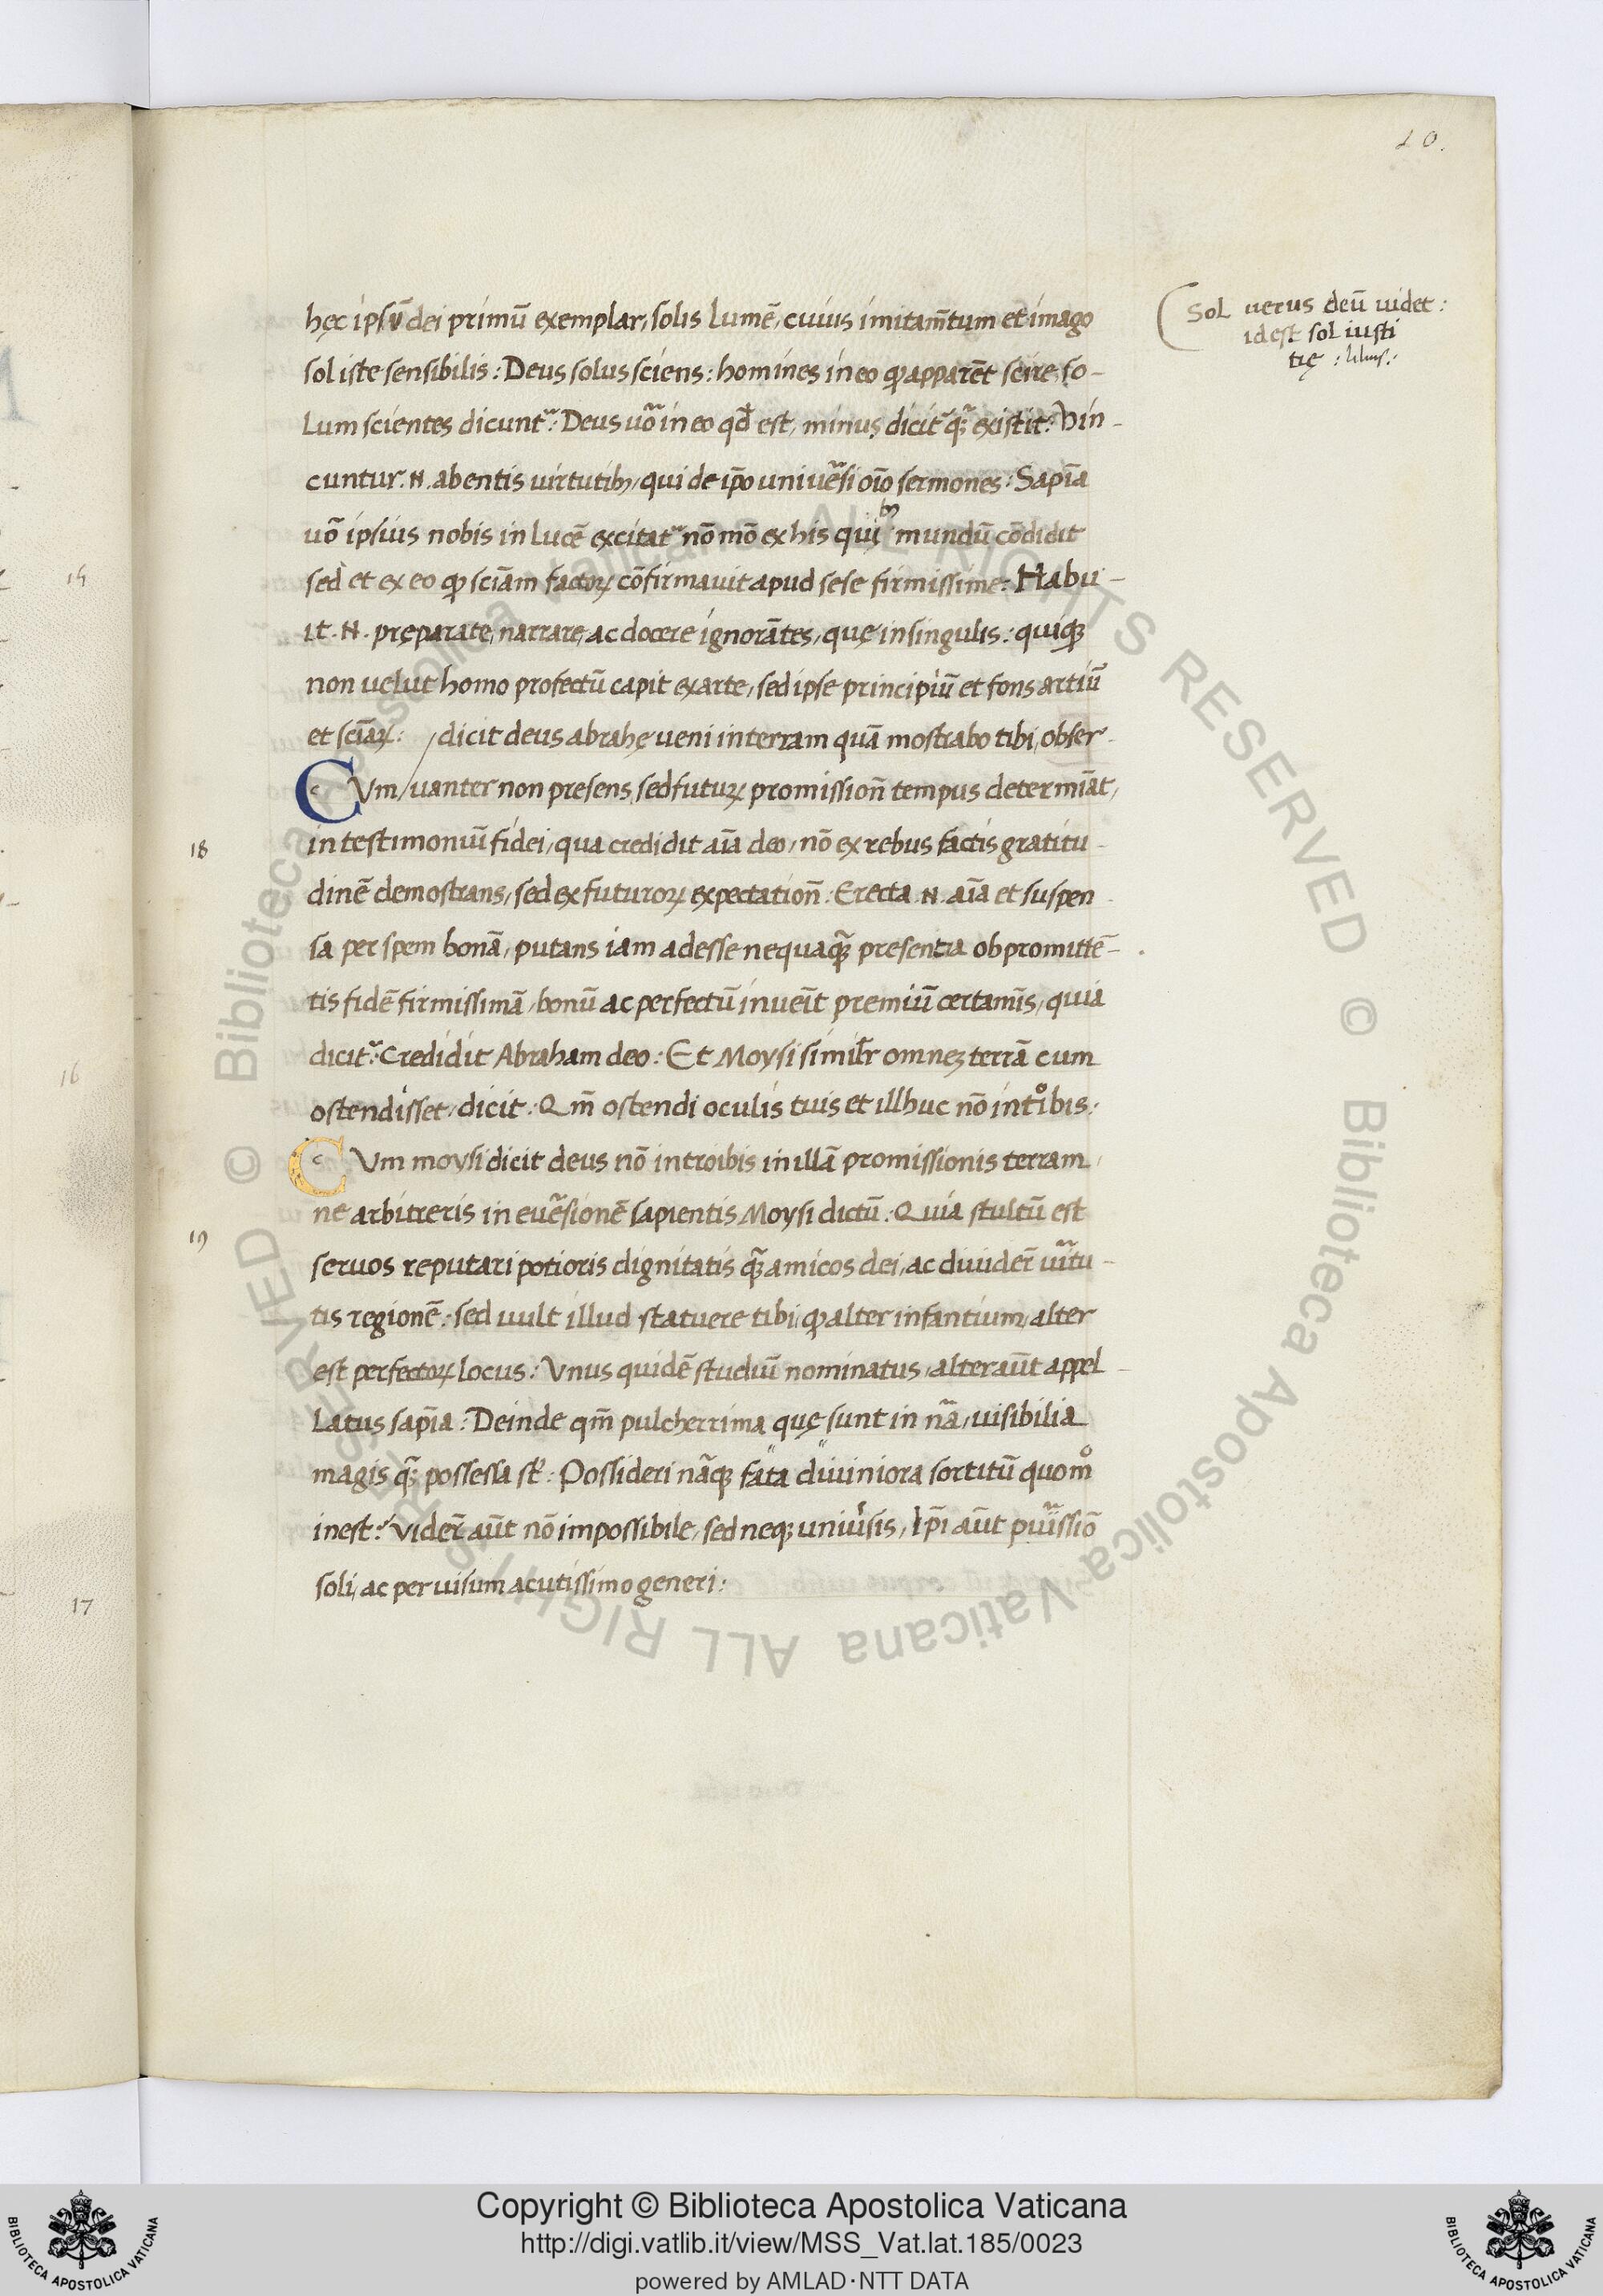 20.
Sol uerus deū uidet :
idest sol iusti
tię :
hęc ipsū dei primū exemplar, solis Lumē, cuius imitam̄tum et imago
sol iste sensibilis : Deus solus sciens : homines in eo ꝙ apparēt scire so-
Lum scientes dicunt᷑ : Deus uō in eo qđ est, minus dicit᷑ q̄ existit : Vin-
cuntur .N. abentis uirtutibꝫ, qui de ip̄o uniuersi oīo sermones : Sapīa
uō ipsius nobis in Lucē excitat᷑ nō mō ex his quibꝫ mundū cōdidit
15
sed et ex eo ꝙ sciām factoꝝ cōfirmauit apud sese firmissime : Habu-
it .N. pręparate, narrare, ac docere ignorātes, quę in singulis : quiqꝫ
non uelut homo profectū capit ex arte, sed ipse principiū et fons artiū
et sciāꝝ : / dicit deus abrahę ueni in terram quā mostrabo tibi, obser-
CVm / uanter non presens, sed futuꝝ promissioñ tempus determīat,
18
in testimoniū fidei, qua credidit aīa deo, nō ex rebus factis gratitu-
dinē demostrans, sed ex futuroꝝ expectatioñ : Erecta .N. aīa et suspen-
sa per spem bonā, putans iam adesse nequaq̄ presentia ob promittē-
tis fidē firmissimā, bonū ac perfectū inueīt premiū certamīs, quia
dicit᷑ : Credidit Abraham deo : Et Moysi similr̄ omneꝫ terrā cum
16
ostendisset, dicit : Qm̄ ostendi oculis tuis et illhuc nō intoibis :
CVm moysi dicit deus nō introibis in illā promissionis terram,
ne arbitreris in euersionē sapientis Moysi dictū : Quia stultū est
19
seruos reputari potioris dignitatis q̄ amicos dei, ac diuider̄ uirtu-
tis regionē : sed uult illud statuere tibi, ꝙ alter infantium, alter
est perfectoꝝ locus : Vnus quidē studiū nominatus, alter aūt appel-
Latus sapīa : Deinde qm̄ pulcherrima quę sunt in nā, uisibilia
magis q̄ possessa st̄ : Possideri nāqꝫ fata diuiniora sortitū quomo
inest : Vider̄ aūt nō impossibile, sed neqꝫ uniuersis, Ip̄i aūt purissiō
soli, ac per uisum acutissimo generi :
17
Copyright © Biblioteca Apostolica Vaticana
http://digi.vatlib.it/view/MSS_Vat.lat.185/0023
powered by AMLAD·NTT DATA
BIBLIOTECA APOSTOLICA VATICANA
BIBLIOTECA APOSTOLICA VATICANA
© Biblioteca Apostolica Vaticana ALL RIGHTS RESERVED © Biblioteca Apostolica Vaticana ALL RIGHTS RESERVED